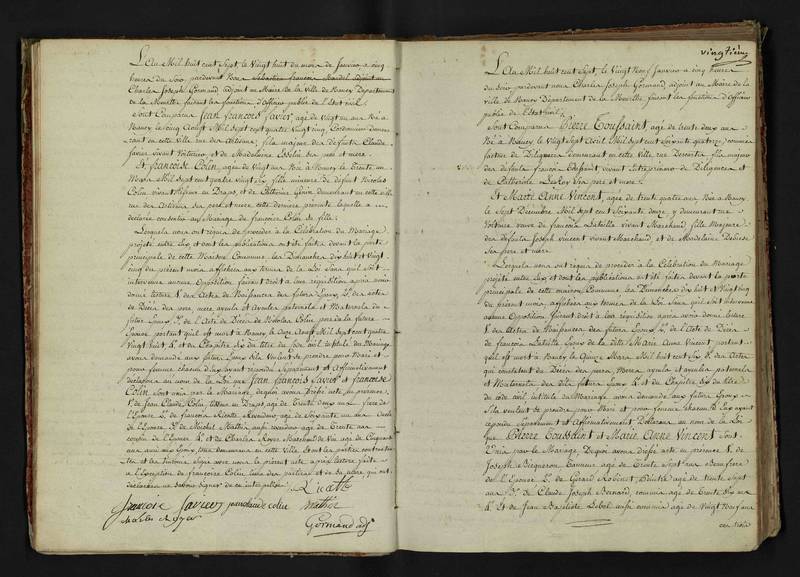 L'An Mil huit cent Sept, le Vingt huit du mois de Janvier a cinq
heures du Soir, pardevant Nous Sebastien francois Mandel adjoint au
Charles Joseph Gormand adjoint au Maire de la Ville de Nancy Departement
de la Meurthe faisant les fonctions d'Officier public de l'Etat Civil.
Sont Comparus Jean francois Savier, agé de Vingt un ans Né à
Nancy le Cinq Aoust Mil Sept cent quatre Vingt cinq, Cordonnier demeu
rant en cette Ville rue des Artisans, fils majeur des defunts Claude
Savier vivant Voiturier, et de Madelaine ses pere et mere.
Et francoise Colin, agée de Vingt ans Née à Nancy le Trente un
Mars Mil Sept cent quatre Vingt Six, fille mineure de defunt Nicolas
Colin, vivant en Draps, et de Catherine demeurant en cette ville
rue des Artisans ses pere et mere, cette derniere presente laquelle a
declaré consentir au Mariage de francoise Colin sa fille;
Lesquels nous ont requis de proceder à la Celebration du Mariage
projeté entre Eux et dont les publications ont été faites devant la porte
principale de cette Maison Commune, les Dimanches dix huit et Vingt
cinq du present mois, affichées aux termes de la Loi Sans qu'il soit
intervenu aucune Opposition, faisant droit à leur requisition apres avoir
donné lecture 1°. des Actes de Naissances des futurs Epoux, 2°. des actes
de Décès des pere, mere, ayeuls et ayeules paternels et Maternels du
futur Epoux 3°. de l'Acte de Décès de Nicolas Colin pere de la future
Epouse portant qu'il est mort à Nancy le Douze Aoust Mil Sept cent quatre
Vingt huit, 4°. et du Chapitre Six du titre du Code civil intitulé du Mariage
avons demandé aux futurs Epoux s'ils Veulent se prendre pour Mari et
pour femme chacun d'eux ayant repondu Séparément et Affirmativement
déclarons au nom de la Loi que Jean francois Savier et francoise
Colin sont unis par le Mariage, dequoi avons dressé acte en presence
1°. de Jean Claude Colin, en Draps, agé de Trente deux ans frere de
l'Epouse 2°. de francois Rivatte Rentier, agé de Soixante un ans Oncle
de l'Epouse 3°. de Michel Mathis aussi agé de Trente ans
cousin de l'Epouse 4°. et de Charles Royer Marchand de Vin agé de Cinquante
ans ami aux Epoux, tous demeurans en cette Ville dont les parties contractan
tes et les temoins, signé avec nous le present acte apres lecture faite
à l'exception de francoise Colin, l'une des parties, et de sa mere, qui ont
declaré ne savoir signer de ce interpellées.
francois Savier jean claude colin Mathis
charles Royer Gormand adj.
Vingtième
L'An Mil huit cent Sept, le Vingt Neuf Janvier a cinq heures
du Soir pardevant nous Charles Joseph Gormand, adjoint au Maire de la
ville de Nancy Departement de la Meurthe faisant les fonctions d'Officier
public de l'Etat Civil.
Sont Comparus Pierre Toussaint, agé de trente deux ans
Né à Nancy le Vingt Sept Aout Mil Sept cent Soixante quatorze, commis
facteur de Diligences, demeurant en cette ville rue fils majeur
des defunts francois Toussaint vivant Entrepreneur de Diligences, et
de Catherine ses pere et mere.
Et Marie Anne Vincent, agée de trente quatre ans Née à Nancy
le Sept Decembre Mil Sept cent Soixante douze, y demeurant rue
Voltaire veuve de francois Latuille vivant Marchand, fille Majeure
des defunts Joseph Vincent vivant Marchand, et de Madelaine
ses pere et mere.
Lesquels nous ont requis de proceder à la Celebration du Mariage
projeté entre Eux et dont les publications ont été faites devant la porte
principale de cette maison Commune les Dimanches dix huit et Vingt cinq
du present mois, affichées aux termes de la Loi, Sans qu'il soit Intervenu
aucune Opposition faisant droit à leur requisition apres avoir donné lecture
1°. des Actes de Naissances des futurs Epoux 2°. de l'Acte de Décès
de francois Latuille Epoux de la dite Marie Anne Vincent portant
qu'il est mort à Nancy le Quinze Mars Mil huit cent Six 3°. des Actes
qui constatent le Décès des peres, Meres, ayeuls et ayeules paternels
et Maternels des dits futurs Epoux 4°. et du Chapitre Six du titre
du code civil intitulé du Mariage avons demandé aux futurs Epoux
s'ils veulent se prendre pour Mari et pour femme chacun d'Eux ayant
repondu Séparément et Affirmativement, Déclarons au nom de la Loi
que Pierre Toussaint et Marie Anne Vincent Sont
Unis par le Mariage Dequoi avons dressé acte en presence 1°. de
Joseph Tanneur agé de Trente Sept ans Beau frere
de l'Epouse 2°. de Gerard Robert, agé de trente Sept
ans 3°. de Claude Joseph Bernard, commis agé de Trente Six ans
4°. et de Jean Baptiste Lobel aussi commis agé de Vingt Neuf ans
ces trois